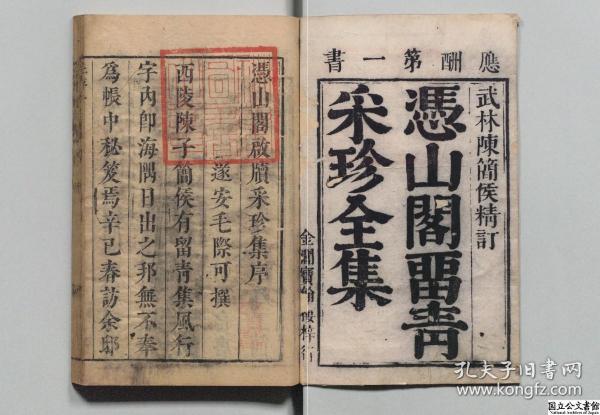 應酬第一書
武林陳簡侯精訂
憑山閣畱青
采珍全集
憑山閣啟牘采珍集序
遂安毛際可撰
西陵陳子簡侯有留青集風行
字內即海隅日出之邦無不奉
為帳中秘笈焉辛巳春訪余邸
孔夫子旧书网
kongfz.com
国立公文書館
National Archives of Japan